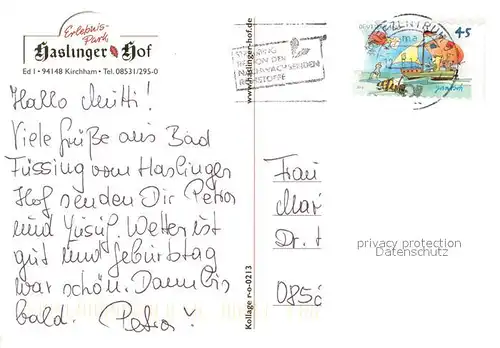 Erlebnis-
Park
Haslinger Hof
Ed 1 • 94148 Kirchham • Tel. 08531/295-0
Hallo Mutti!
Viele Grüße aus Bad
Füssing vom Haslinger
Hof senden Dir Petra
und Yusuf. Wetter ist
gut und Geburtstag
war schön. Dann bis
bald. Petra
www.haslinger-hof.de
Kollage r-o-0213
STRAUBING
REGION DER
NACHWACHSENDEN
ROHSTOFFE
45
Janosch
Frau
Mar
Dr.
085
privacy protection
Datenschutz